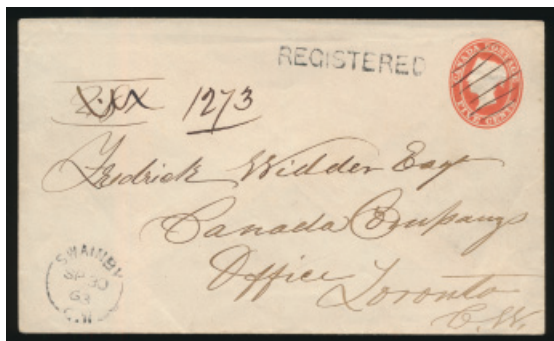 REGISTERED
CANADA POSTAGE
1273
Fredrick Widder Esqr
Canada Company
Office
Toronto
C.W.
SWAINBY
SP 30
63
C.W